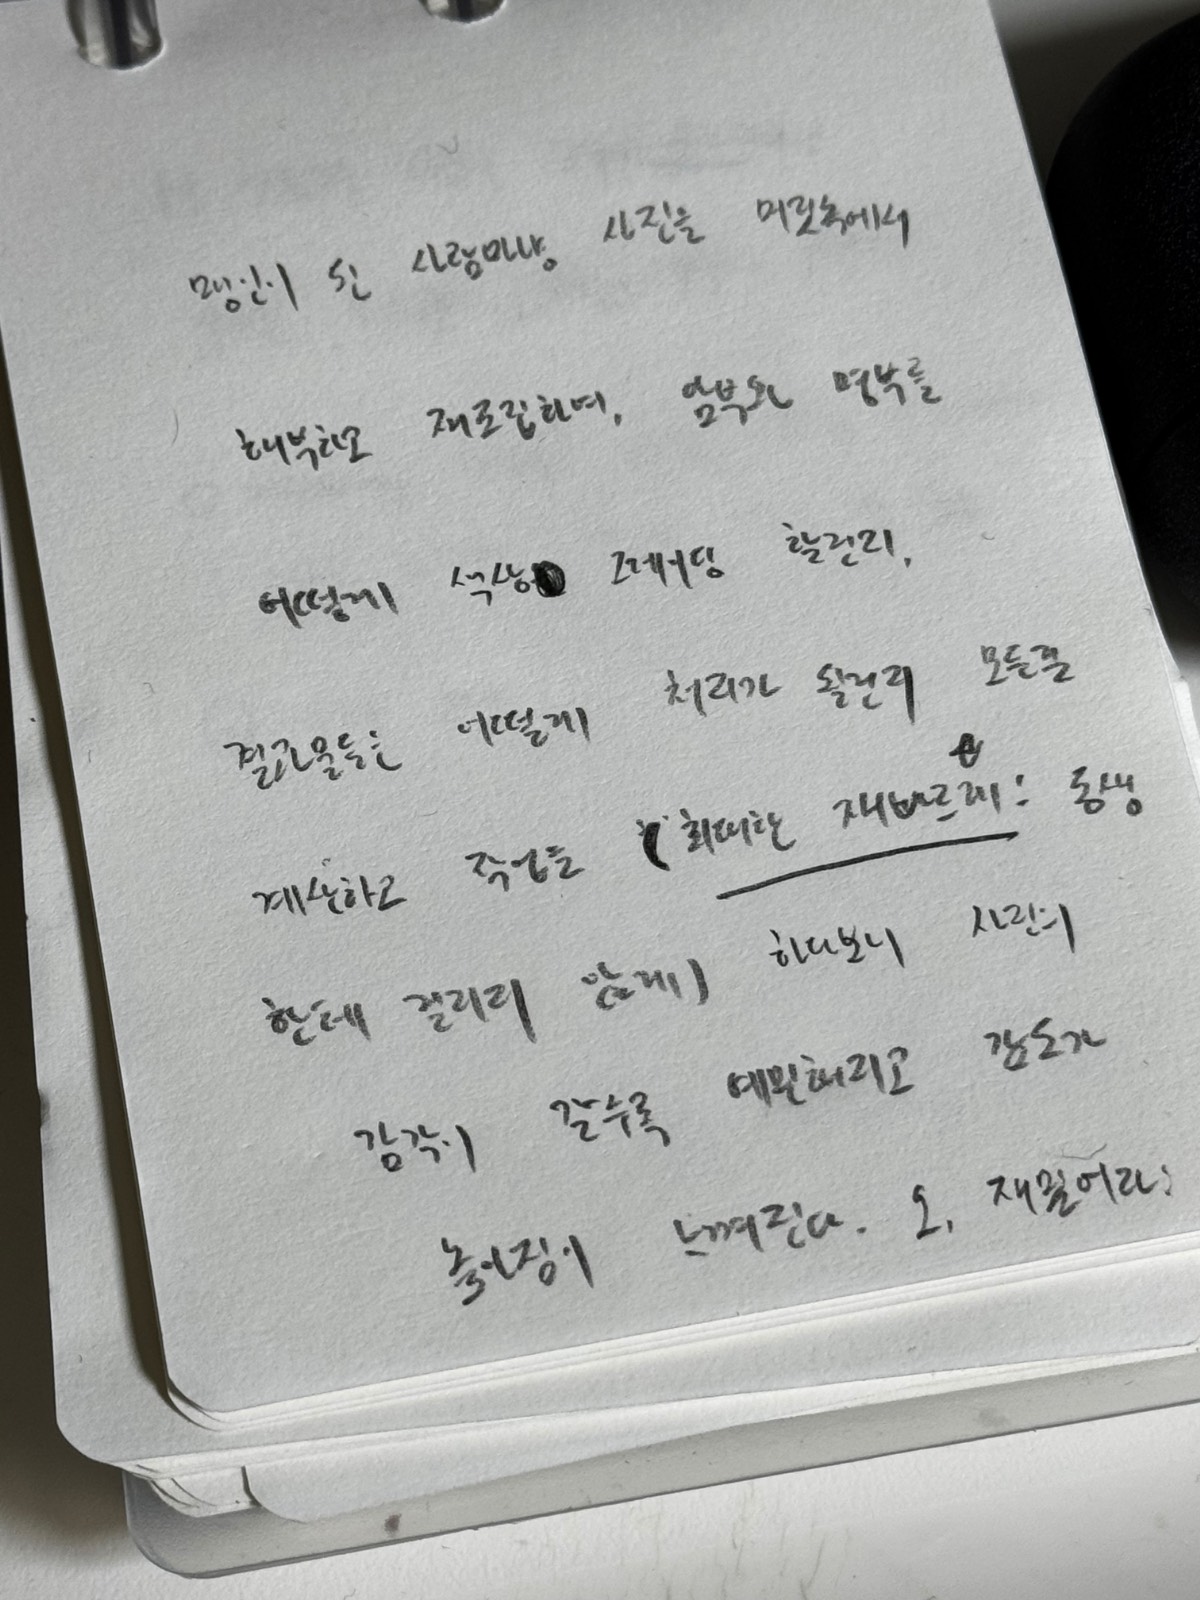 맹인이 된 사람마냥 사진을 머릿속에서
해부하고 재조립하며, 암부와 명부를
어떻게 색상 그레이딩 할런지,
결과물들은 어떻게 처리가 될런지 모든걸
계산하고 작업을 (최대한 재빠르게: 동생
한테 걸리지 않게) 하다보니 사진의
감각이 갈수록 예민해지고 감도가
높아짐이 느껴진다. 오, 재밌어라: